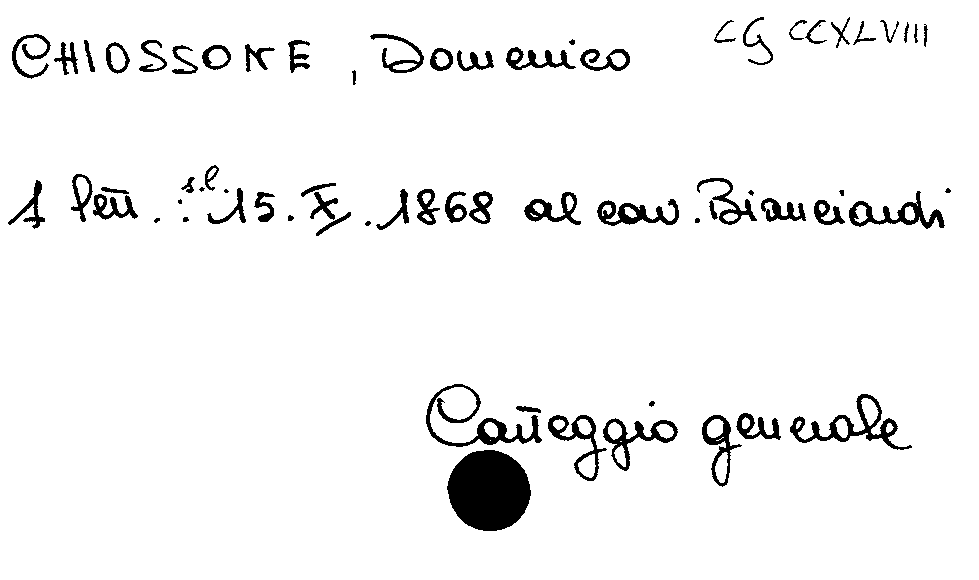 CHIOSSONE, Domenico CG CCXLVIII
1 lett. s.l. 15.X.1868 al cav. Bianciardi
Carteggio generale